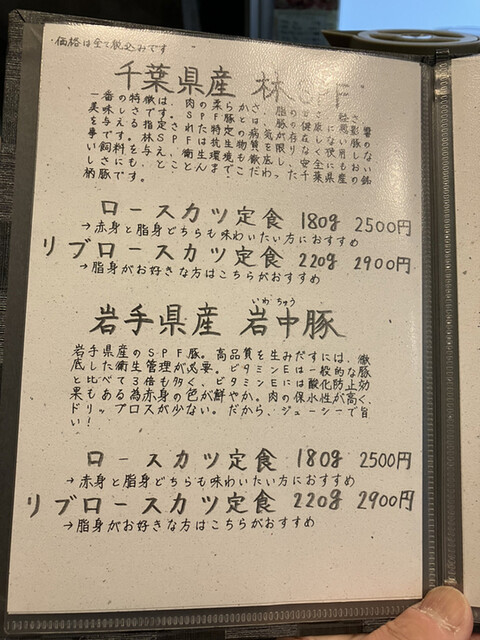 ・価格は全て税込みです
千葉県産 林SPF
一番の特徴は、肉の柔らかさ、脂の さ、
美味しさです。SPF豚とは、豚の健康に影響
を与える指定された特定の病気が存在しない豚の
事です。林SPFは抗生物質を限りなく使用しな
い飼料を与え、衛生環境も徹底し、安全にもおい
しさにも、とことんまでこだわった千葉県産の銘
柄豚です。
ロースカツ定食 180g 2500円
→赤身と脂身どちらも味わいたい方におすすめ
リブロースカツ定食 220g 2900円
→脂身がお好きな方はこちらがおすすめ
いわちゅう
岩手県産 岩中豚
岩手県産のSPF豚。高品質を生みだすには、徹
底した衛生管理が必要。ビタミンEは一般的な豚
と比べて3倍も多く、ビタミンEには酸化防止効
果もある為赤身の色が鮮やか。肉の保水性が高く、
ドリップロスが少ない。だから、ジューシーで旨
い！
ロースカツ定食 180g 2500円
→赤身と脂身どちらも味わいたい方におすすめ
リブロースカツ定食 220g 2900円
→脂身がお好きな方はこちらがおすすめ